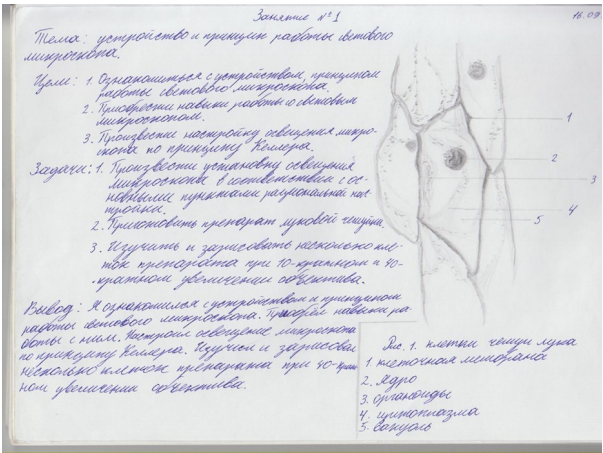 Занятие №1
18.09
Тема: устройство и принцип работы светового
микроскопа.
Цели: 1. Ознакомиться с устройством, принципом
работы светового микроскопа.
2. Приобрести навыки работы со световым
микроскопом.
3. Произвести настройку освещения микро-
скопа по принципу Келлера.
Задачи: 1. Произвести установку освещения
микроскопа в соответствии с ос-
новными пунктами рациональной нас
тройки.
2. Приготовить препарат луковой чешуйки.
3. Изучить и зарисовать несколько кле-
ток препарата при 10-кратном и 40-
кратном увеличении объектива.
Вывод: Я ознакомился с устройством и принципом
работы светового микроскопа. Приобрёл навыки ра-
боты с ним. Настроил освещение микроскопа
по принципу Келлера. Изучил и зарисовал
несколько клеток препарата при 40-крат
ном увеличении объектива.
1
2
3
4
5
Рис. 1. клетки чешуи лука
1 клеточная мембрана
2. Ядро
3. органоиды
4. цитоплазма
5. вакуоль